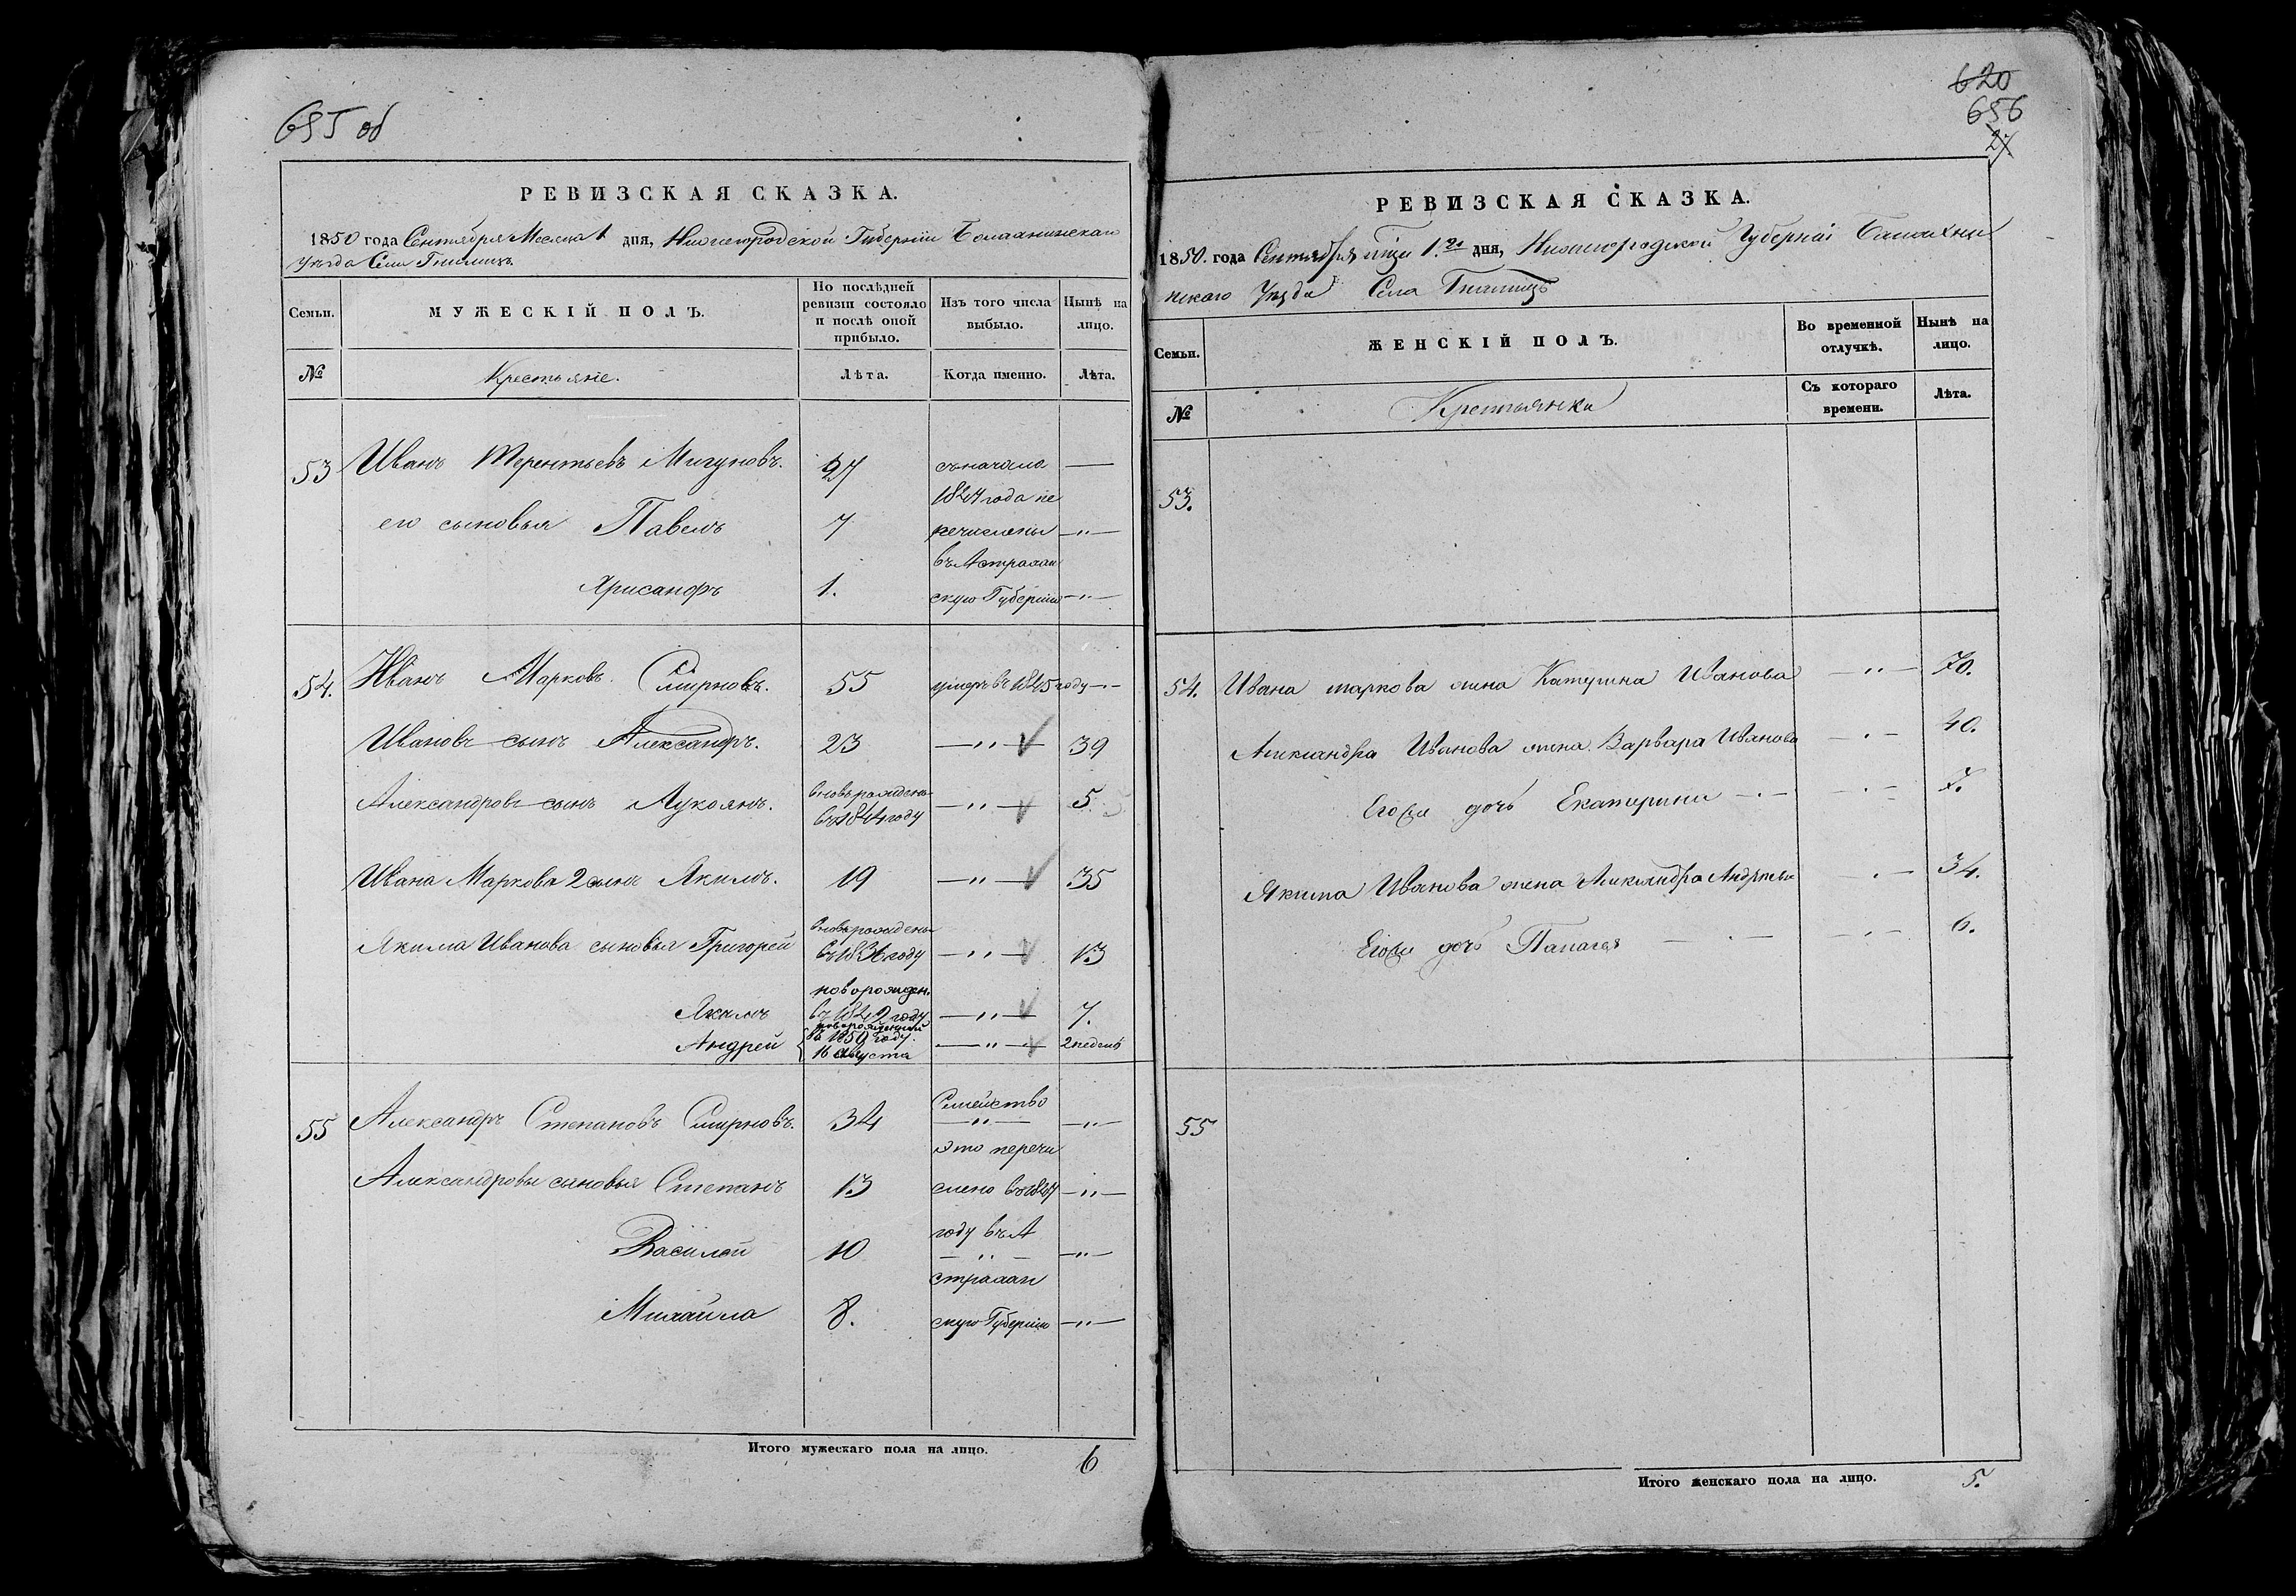 655 об
РЕВИЗСКАЯ СКАЗКА.
1850 года Сентября Месяца 1 дня, Нижегородской Губерніи Балахнинскаго
Уѣзда Села Гнилицъ
Семьи.
МУЖЕСКІЙ ПОЛЪ.
По послѣдней ревизіи состояло и послѣ оной прибыло.
Изъ того числа выбыло.
Нынѣ на лицо.
№
Крестьяне.
Лѣта.
Когда именно.
Лѣта.
53 Иванъ Терентьевъ Мигуновъ. 27 съ начала —
1827 года пе
его сыновья Павелъ 7 речислены — " —
въ Астрахан
Хрисанфъ 1. скую Губернію — " —
54. Иванъ Марковъ Смирновъ. 55 умеръ въ 1845 году — " —
Ивановъ сынъ Александръ. 23 — " — 39
Александровъ сынъ Лукоянъ. вновьрожденъ въ 1844 году — " — 5
Ивана Маркова 2 сынъ Якимъ. 19 — " — 35
Якима Иванова сыновья Григорей вновьрожденъ въ 1836 году — " — 13
Якимъ новорожден. въ 1842 году — " — 7.
Андрей новорожденный въ 1850 году. 16 августа — " — 2 недель
55 Александръ Степановъ Смирновъ. 34 Семейство — " —
это перечи
Александровы сыновья Степанъ 13 слено въ 1827 — " —
году въ А
Василей 10 — " —
страхан
Михайла 8. скую Губернію — " —
Итого мужескаго пола на лицо. 6
620
656
27
РЕВИЗСКАЯ СКАЗКА.
1850. года Сентября 1.го дня, Нижегородской Губерніи Балахни
нскаго Уѣзда Села Гнилицъ
Семьи.
ЖЕНСКІЙ ПОЛЪ.
Во временной отлучкѣ.
Нынѣ на лицо.
№
Крестьянки
Съ котораго времени.
Лѣта.
53.
54. Ивана маркова жена Катерина Иванова — " — 70.
Александра Иванова жена Варвара Иванова — " — 40.
Его же дочь Екатерина — " — 7.
Якима Иванова жена Александра Андреева — " — 34.
Его же дочь Палагея — " — 6.
55
Итого женскаго пола на лицо. 5.